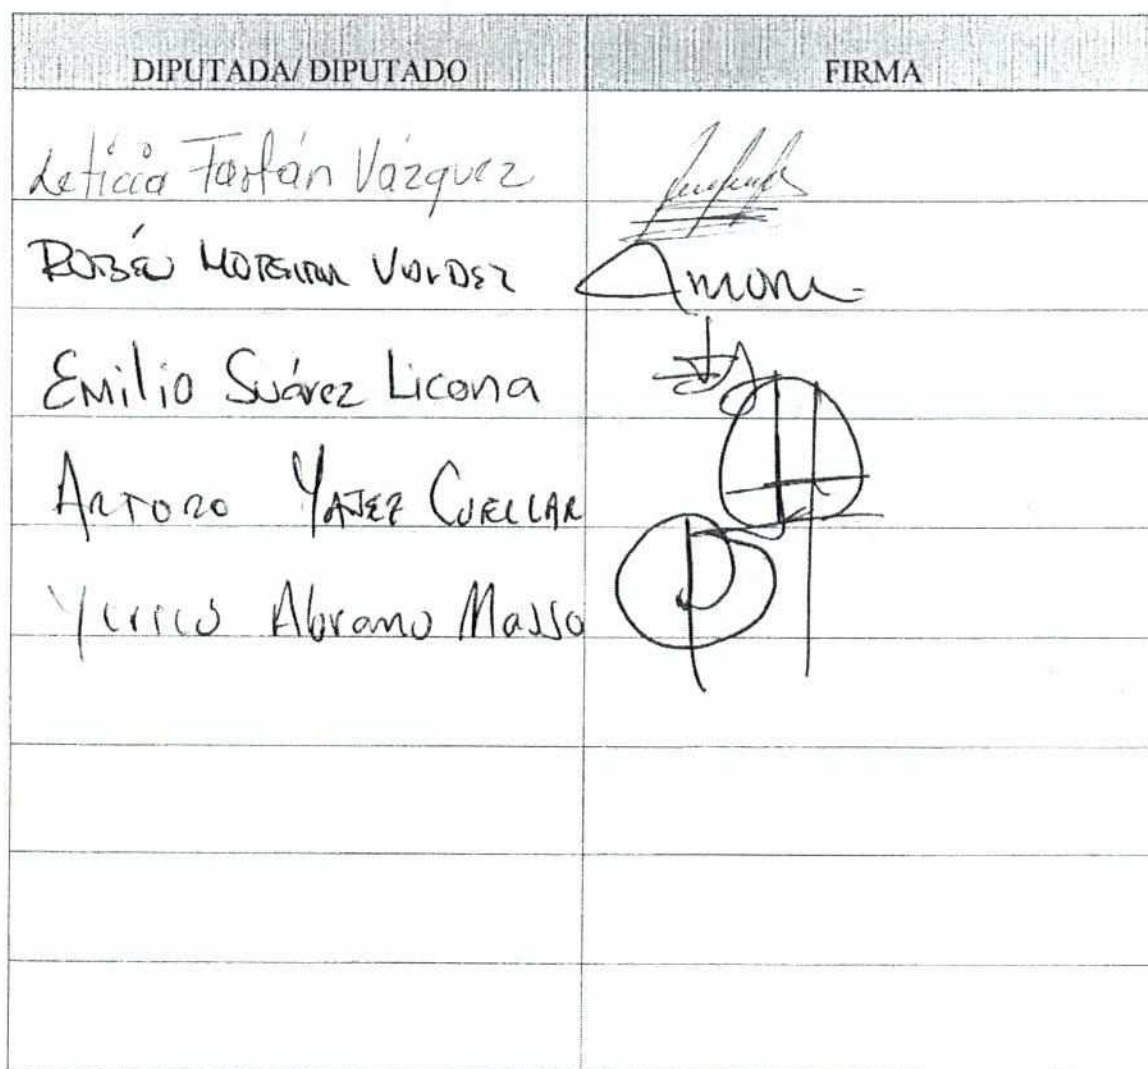 DIPUTADA/ DIPUTADO FIRMA
Leticia Farfán Vázquez
RUBÉN MOREIRA VALDEZ
Emilio Suárez Licona
ARTURO YAÑEZ CUELLAR
Yerico Abramo Masso